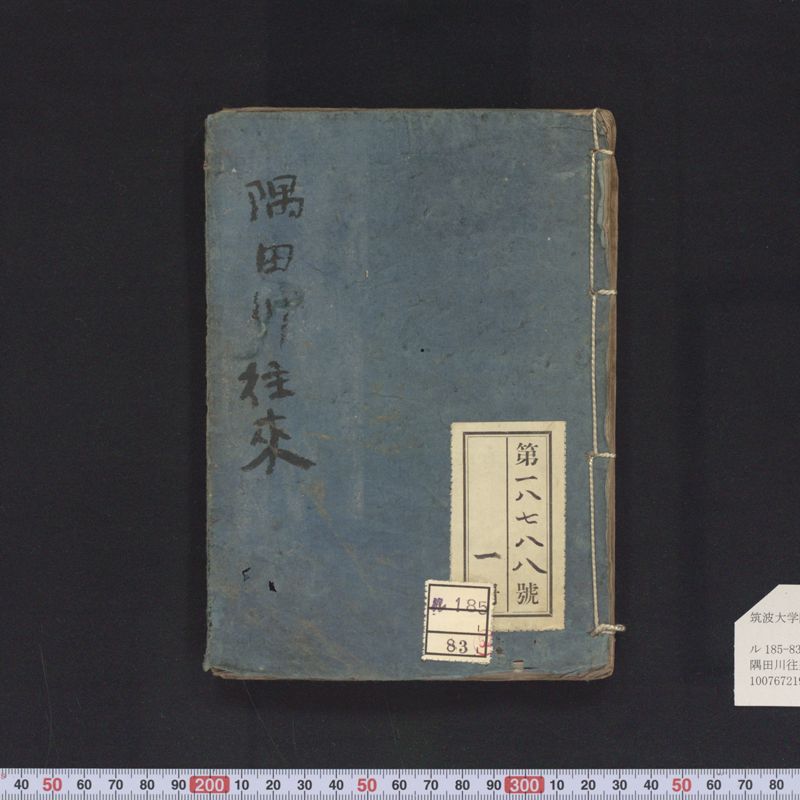 隅田川往來
第一八七八八號
一冊
185
83
筑波大学
ル 185-83
隅田川往
10076721
40 50 60 70 80 90 200 10 20 30 40 50 60 70 80 90 300 10 20 30 40 50 60 70 80